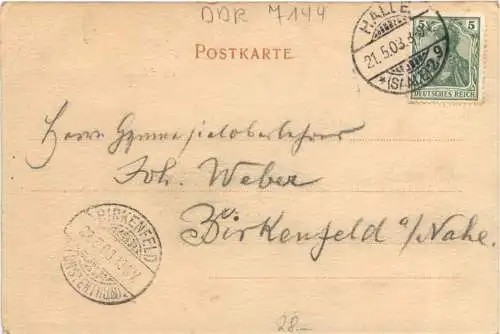 DDR M144
POSTKARTE
HALLE
21.5.03.
*(SAALE)2.
5 5
DEUTSCHES REICH
Herrn Gymnasialoberlehrer
Joh. Weber
Birkenfeld a/Nahe.
BIRKENFELD
(FÜRSTENTHUM)
28.-